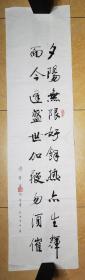 夕陽無限好餘熱亦生輝
而今逢盛世加鞭勿須催